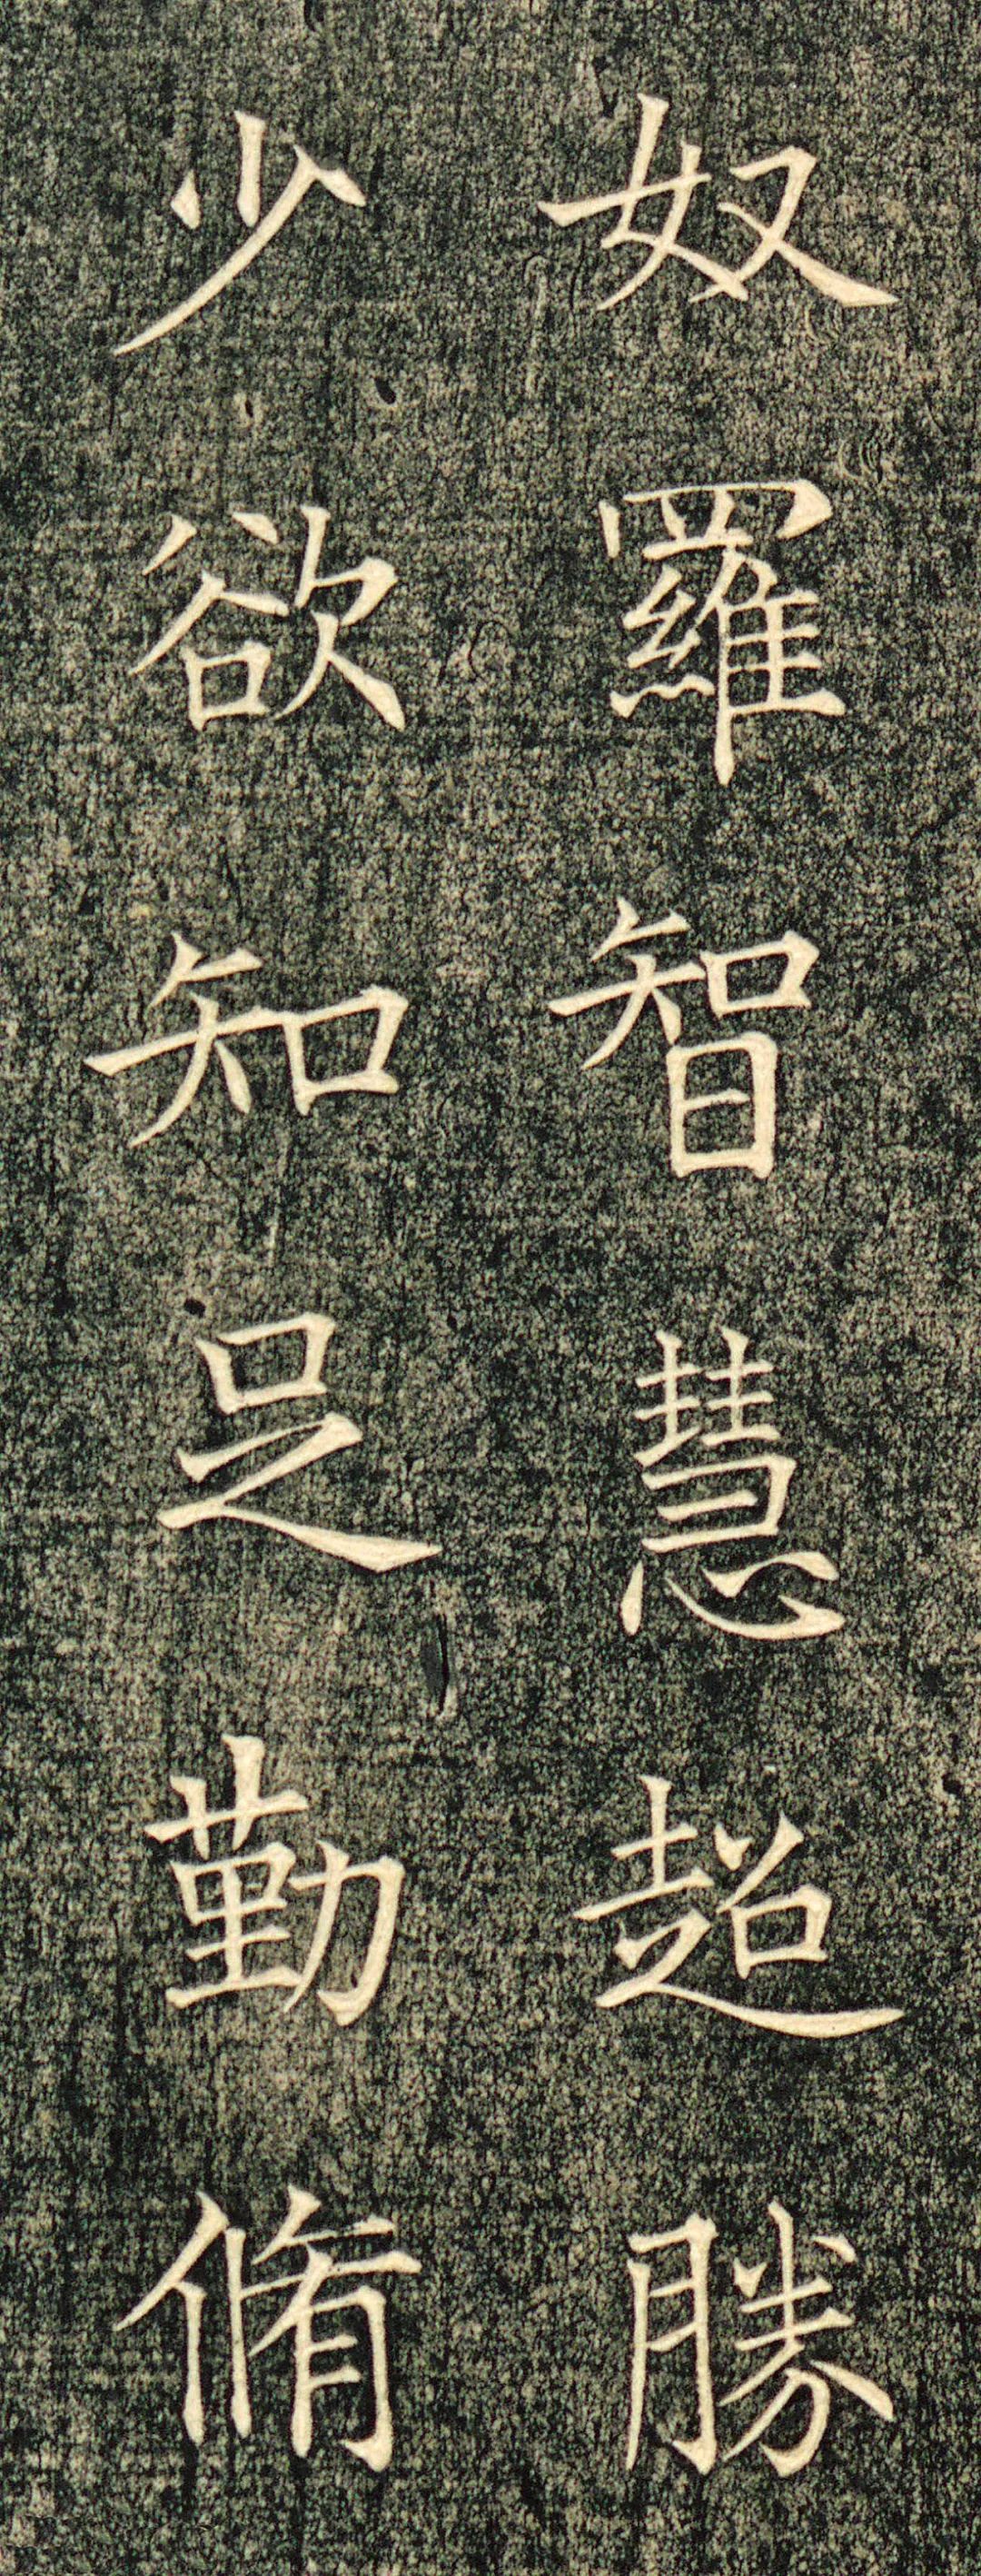 奴羅智慧超勝
少欲知足勤脩